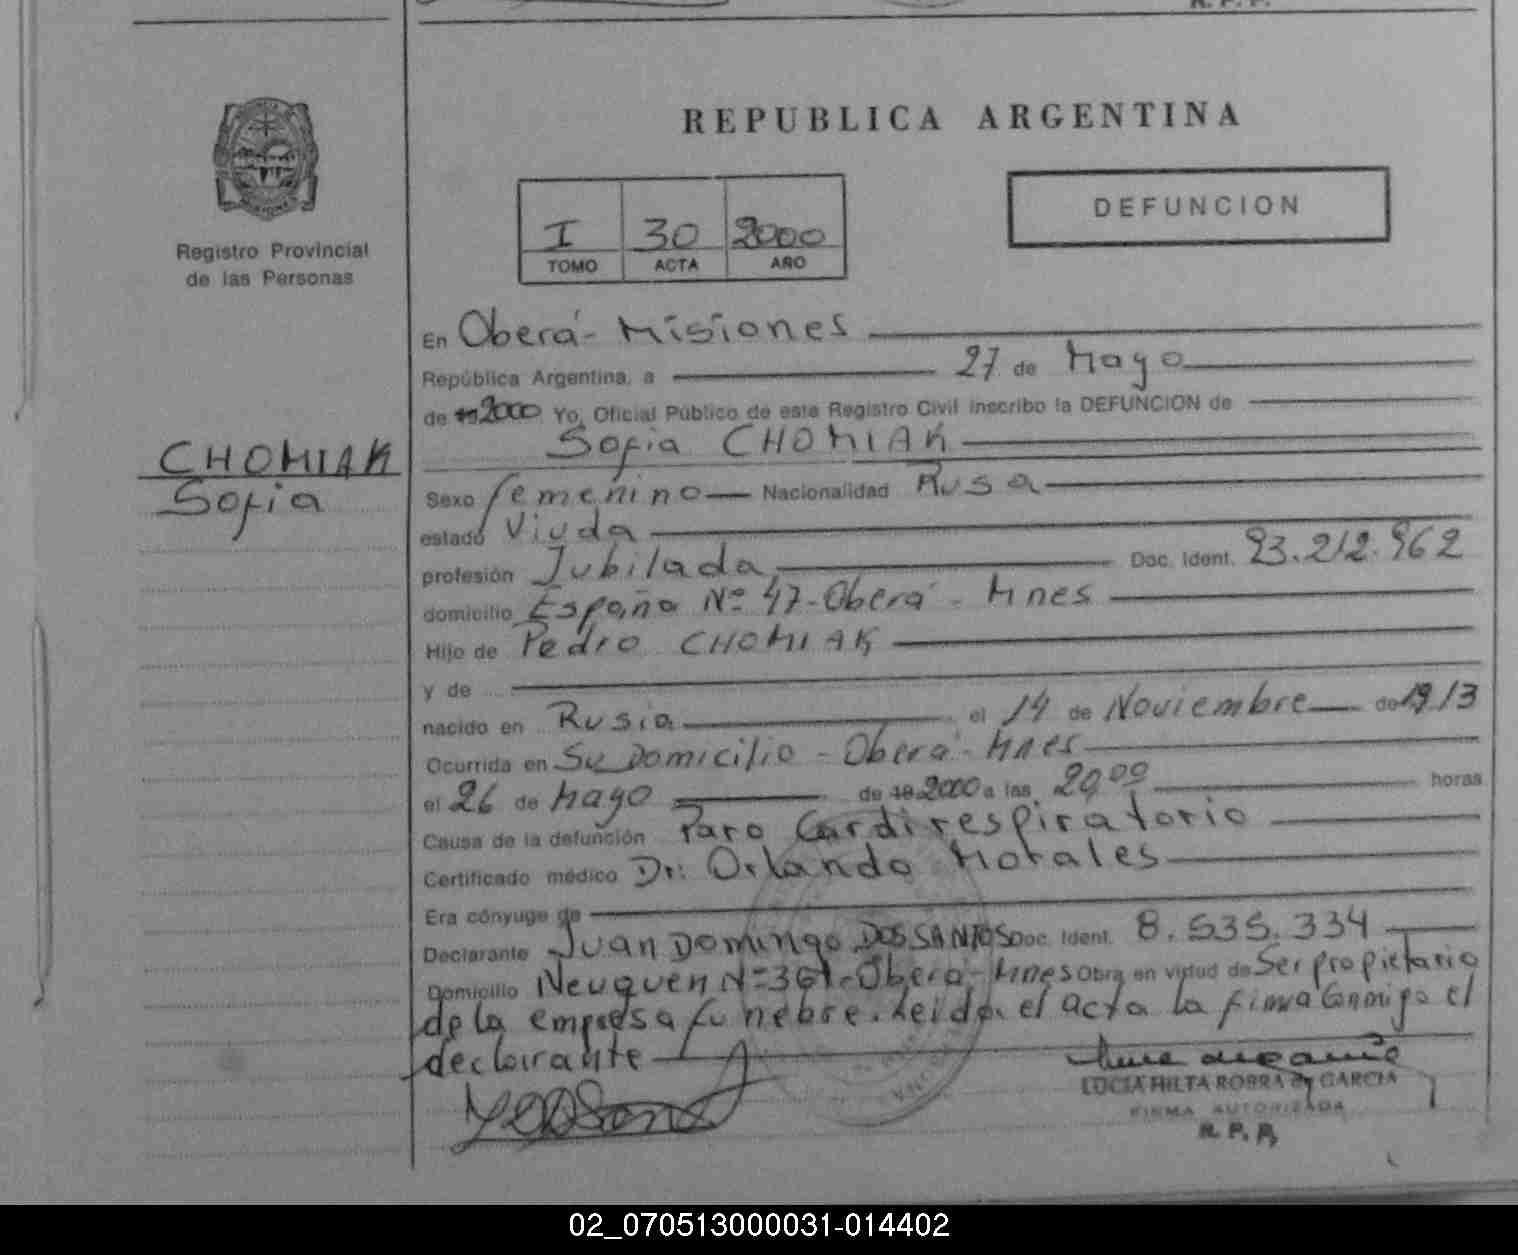 R. P. P.
REPUBLICA ARGENTINA
DEFUNCION
I 30 2000
TOMO ACTA AÑO
Registro Provincial
de las Personas
CHOMIAK
Sofia
En Oberá - Misiones
República Argentina, a 27 de Mayo
de 19 2000 Yo, Oficial Público de este Registro Civil inscribo la DEFUNCION de
Sofia CHOMIAK
Sexo femenino Nacionalidad Rusa
estado Viuda
profesión Jubilada Doc. Ident. 93.212.962
domicilio España Nº 47 - Oberá - Mnes
Hijo de Pedro CHOMIAK
y de
nacido en Rusia el 14 de Noviembre de 1913
Ocurrida en Su Domicilio - Oberá - Mnes
el 26 de Mayo de 19 2000 a las horas
Causa de la defunción Paro Cardirespiratorio
Certificado médico Dr: Orlando Morales
Era cónyuge de
Declarante Juan Domingo DOS SANTOS Doc. Ident. 8.535.334
Domicilio Neuquen Nº 361 - Oberá - Mnes Obra en virtud de Ser propietario
de la empresa funebre. Leida el acta la firma Conmigo el
declarante
LUCIA HILTA ROBRA de GARCIA
FIRMA AUTORIZADA
R. P. P.
02_070513000031-014402